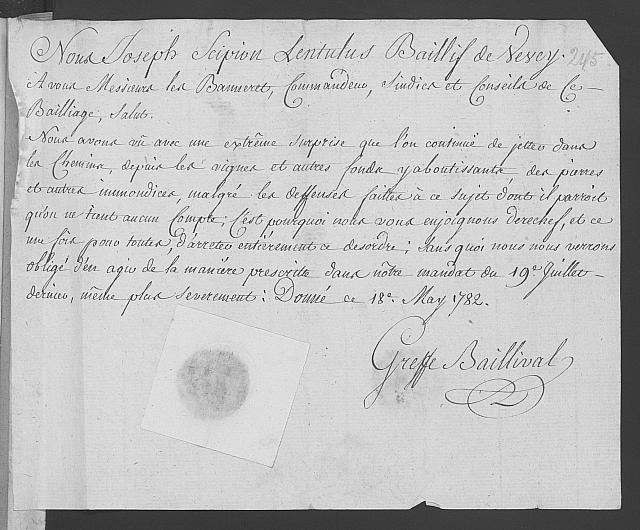 Nous Joseph Scipion Lentulus Baillif de Vevey. 245.
A vous Messieurs les Banneret, Commandeur, Sindics et Conseils de Ce
Bailliage, Salut.
Nous avons vû avec une extrême surprise que l'on continuë de jetter dans
les Chemins, depuis les vignes et autres fonds y aboutissants, des pierres
et autres immondices, malgré les deffenses faites à ce sujet dont il parroit
qu'on ne tient aucun Compte; C'est pourquoi nous vous enjoignons derechef, et ce
une fois pour toutes, d'arreter entiérement ce desordre; Sans quoi nous nous verrons
obligé d'en agir de la maniére prescritte dans nôtre mandat du 19e. Juillet
dernier, même plus severement: Donné ce 18e. May 1782.
Greffe Baillival